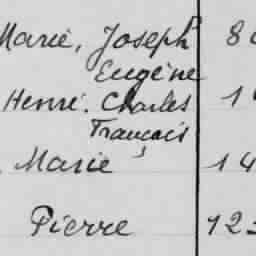 Marie, Joseph 8
Eugène
Henri. Charles 1
Francais
Marie 14
Pierre 123